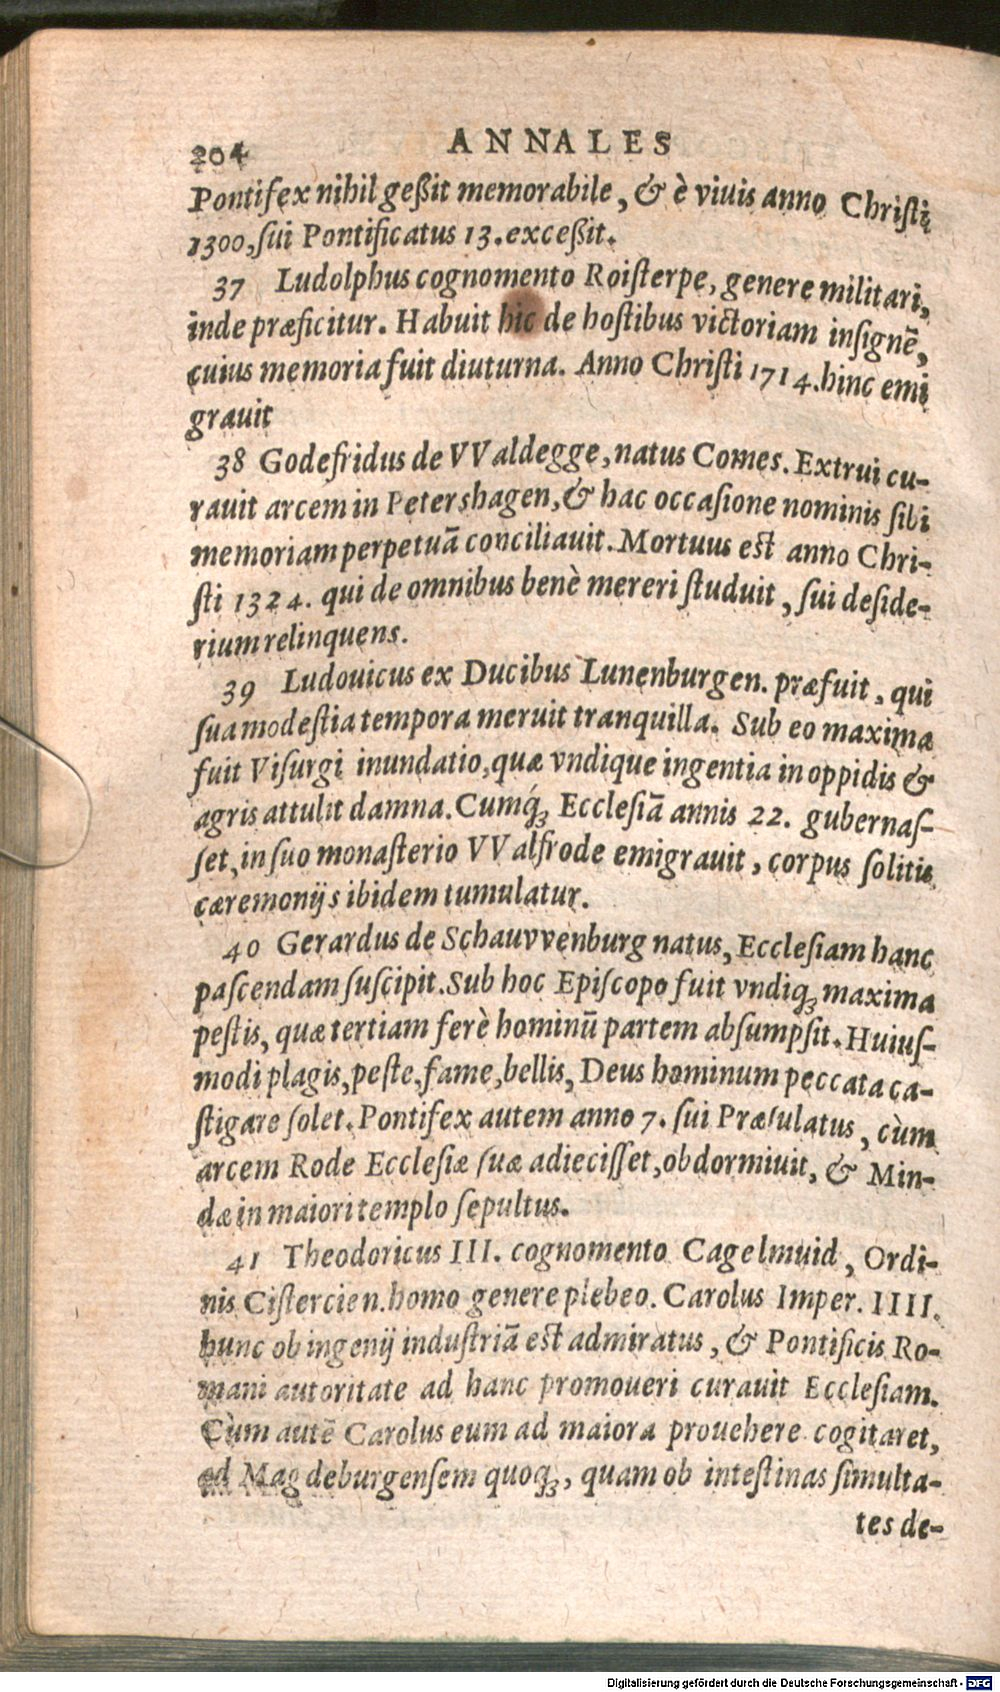 204 ANNALES
Pontifex nihil geßit memorabile, & è viuis anno Chriſti
1300, ſui Pontificatus 13. exceßit.
37 Ludolphus cognomento Roiſterpe, genere militari,
inde præficitur. Habuit hic de hoſtibus victoriam inſignẽ,
cuius memoria fuit diuturna. Anno Chriſti 1714. hinc emi
grauit
38 Godefridus de VValdegge, natus Comes. Extrui cu-
rauit arcem in Petershagen, & hac occaſione nominis ſibi
memoriam perpetuã conciliauit. Mortuus est anno Chri-
ſti 1324. qui de omnibus benè mereri ſtuduit, ſui deſide-
rium relinquens.
39 Ludouicus ex Ducibus Lunenburgen. præfuit, qui
ſua modeſtia tempora meruit tranquilla. Sub eo maxima
fuit Viſurgi inundatio, quæ vndique ingentia in oppidis &
agris attulit damna. Cumq́ꝫ Eccleſiã annis 22. gubernaſ-
ſet, in ſuo monaſterio VValfrode emigrauit, corpus ſolitis
cæremonijs ibidem tumulatur.
40 Gerardus de Schauvvenburg natus, Eccleſiam hanc
paſcendam ſuſcipit. Sub hoc Epiſcopo fuit vndiqꝫ maxima
peſtis, quæ tertiam ferè hominũ partem abſumpſit. Huiuſ-
modi plagis, peſte, fame, bellis, Deus hominum peccata ca-
ſtigare ſolet. Pontifex autem anno 7. ſui Præſulatus, cùm
arcem Rode Eccleſiæ ſuæ adieciſſet, obdormiuit, & Min-
dæ in maiori templo ſepultus.
41 Theodoricus III. cognomento Cagelmuid, Ordi-
nis Ciſtercien. homo genere plebeo. Carolus Imper. IIII.
hunc ob ingenij induſtriã est admiratus, & Pontificis Ro-
mani autoritate ad hanc promoueri curauit Eccleſiam.
Cùm autẽ Carolus eum ad maiora prouehere cogitaret,
ad Magdeburgenſem quoqꝫ, quam ob inteſtinas ſimulta-
tes de-
Digitalisierung gefördert durch die Deutsche Forschungsgemeinschaft - DFG